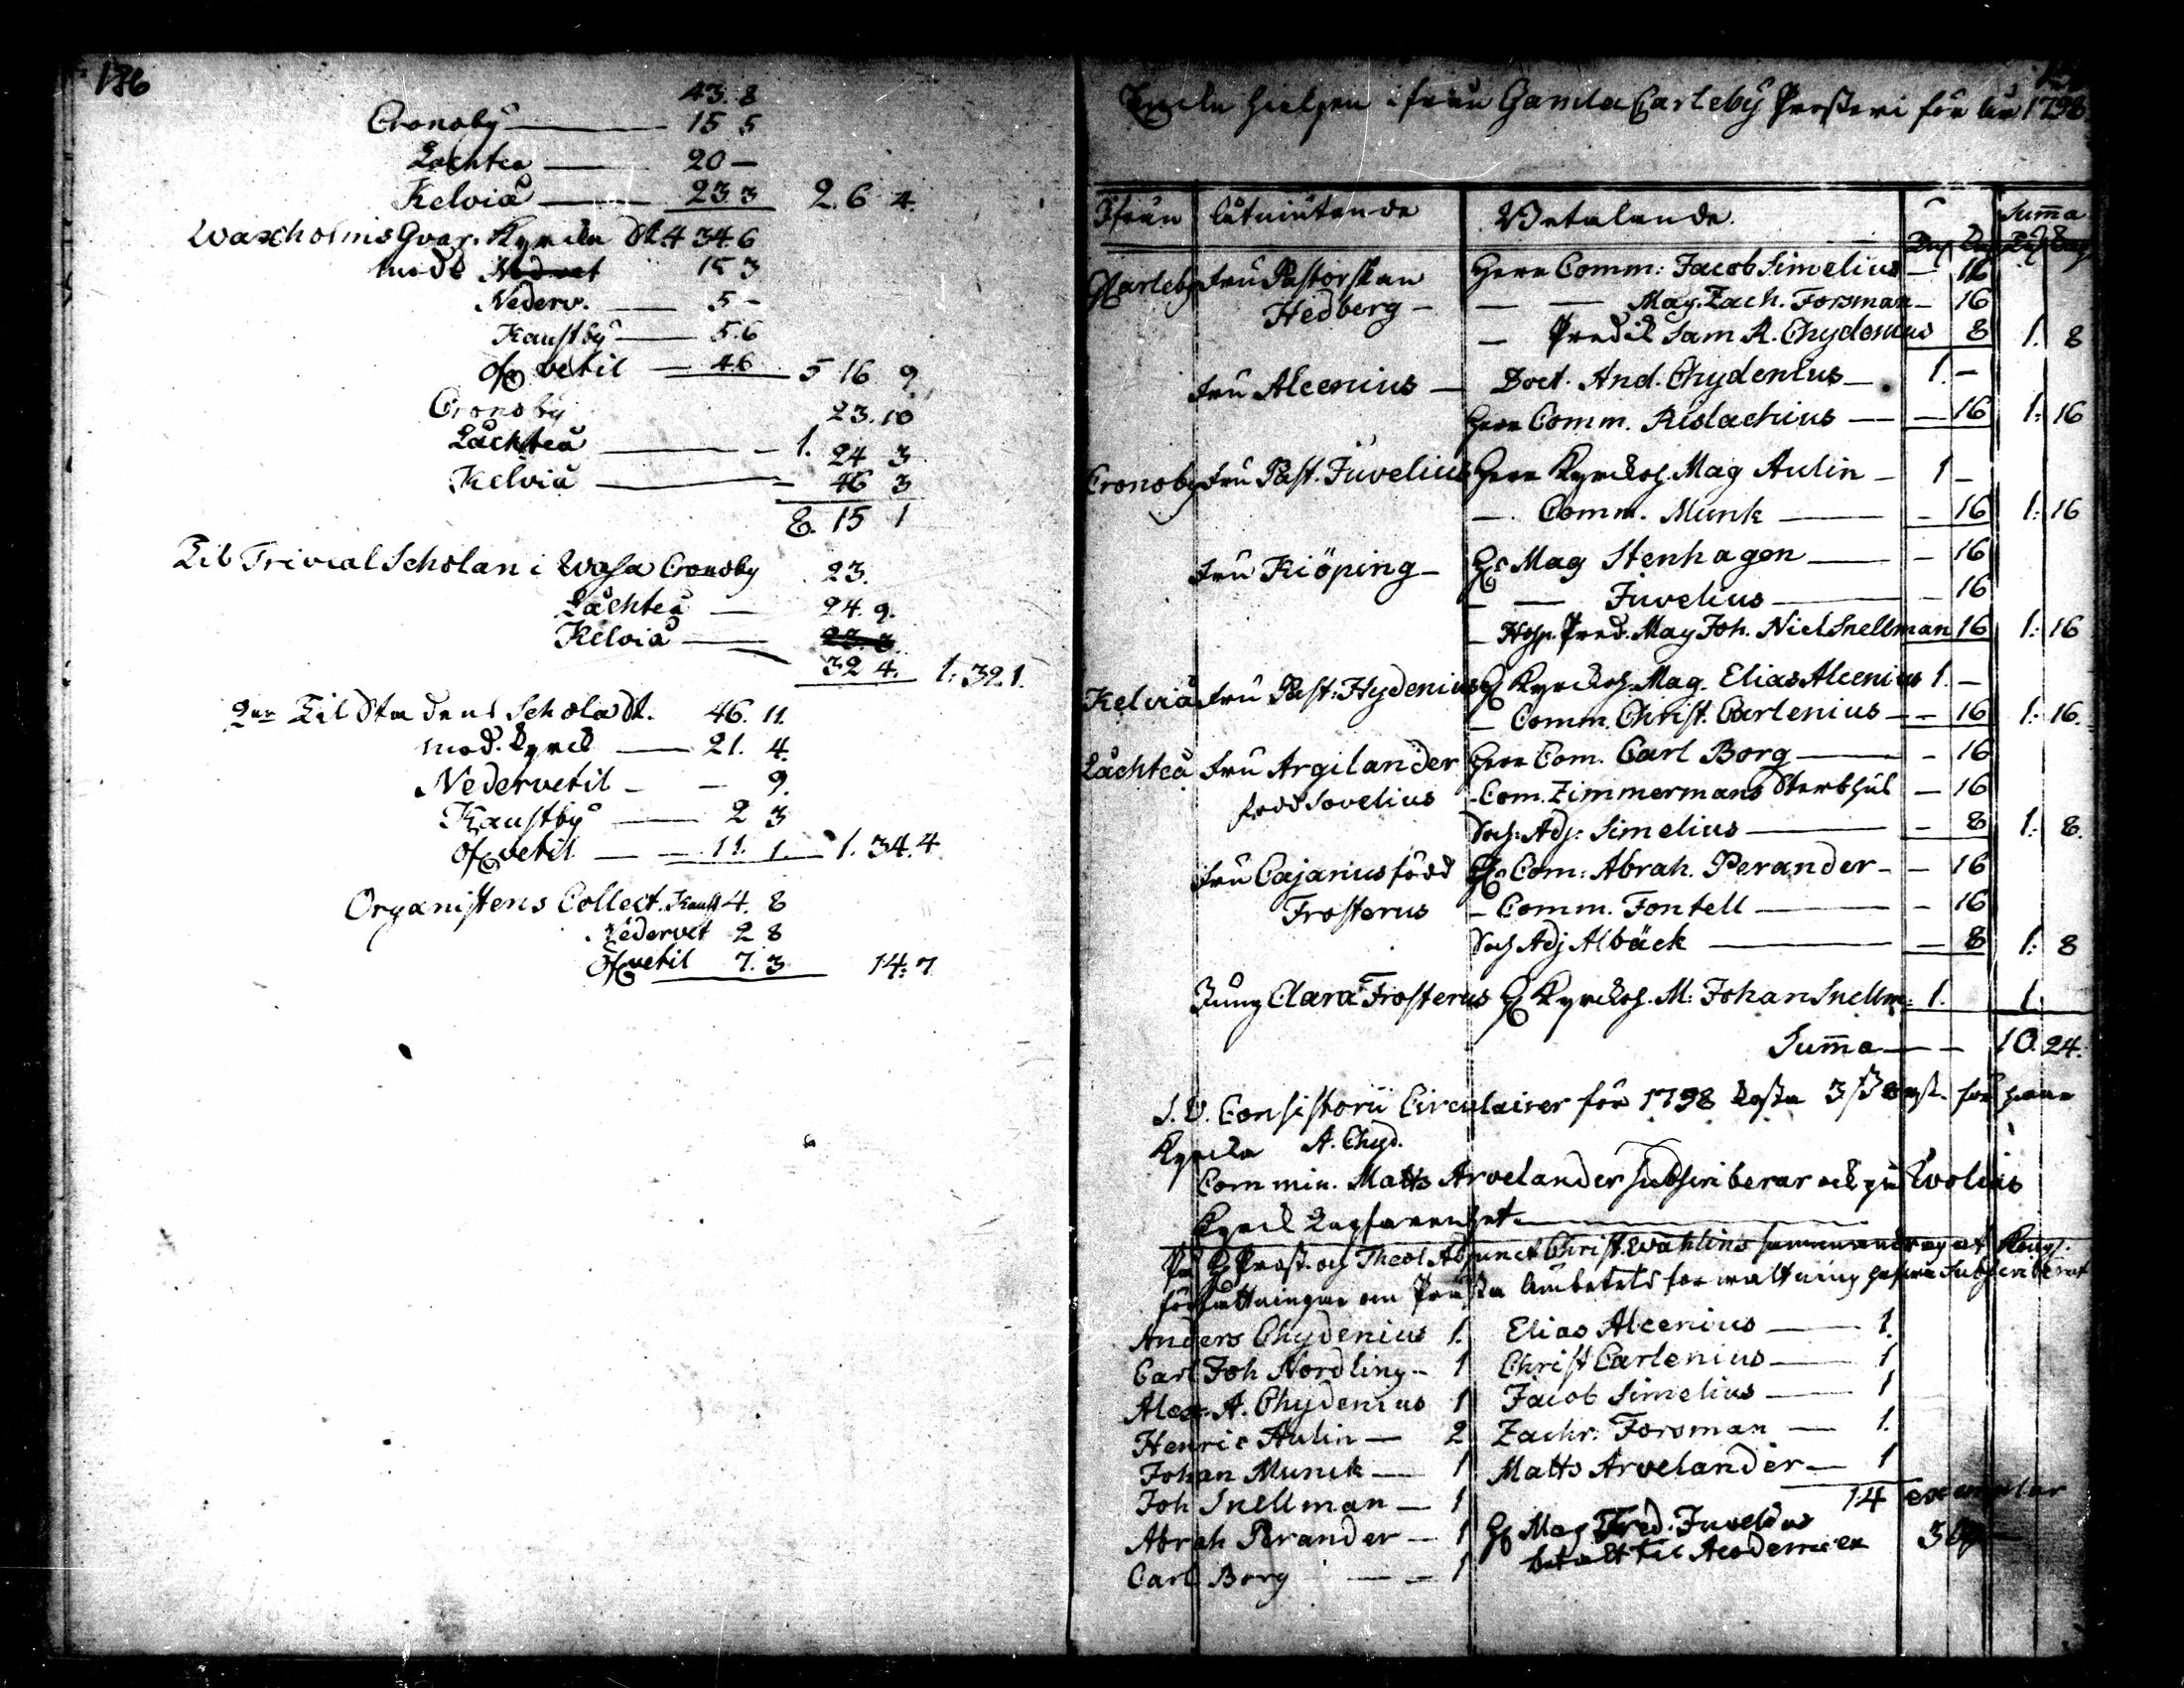 136
43. 8
Cronoby — 15 5
Lochteå — 20 —
Kelviå — 23. 3 2. 6 4.
Waxholms Qvar. Kyrcka St. 4 34. 6
mod. Nedvet 15 3
Nederv. — 5 —
Kaustby — 5. 6
Öfvetil — 4. 6 5 16 9
Cronoby 23. 10
Låchteå — 1. 24 3
Kelviå — 46 3
8. 15 1
Til Trivial Scholan i Wasa Cronoby 23.
Låchteå — 24. 9.
Kelviå — 23. 3
32 4. 1: 32. 1.
Til Stadens Schola St. 46. 11.
mod. Kyrck — 21. 4.
Nedervetil — — 9.
Kaustby — 2 3
Öfvetil — — 11. 1. — 1. 34. 4
Organistens Collect. Kaust 4. 8
Nedervet 2 8
Öfvetil 7. 3 14: 7
Enckehielpen ifrån Gamla Carleby Prosteri för år 1798.
Ifrån Åtniutande Betalande Summa
GCarleby Fru Pastorskan Herr Comm: Jacob Simelius — 16
Hedberg — — — Mag. Zach. Forsman — 16
— Predik Sam A. Chydenius 8 1. 8
Fru Alcenius — Doct. And. Chydenius — 1. —
Herr Comm. Rislachius — — 16 1: 16
Cronoby Fru Past. Juvelius Herr Kyrckoh. Mag Aulin — 1 —
— Comm. Munk — — 16 1: 16
Fru Kiöping — Hr Mag Stenhagen — — 16
— — Juvelius — — 16
— Hosp. Pred. Mag Joh. Nicl Snellman 16 1: 16
Kelviå Fru Past: Hydenius H Kyrckoh. Mag. Elias Alcenius 1. —
— Comm. Christ. Carlenius — — 16 1: 16.
Låchteå Fru Argilander Herr Com. Carl Borg — — 16
född Sovelius — Com. Zimmermans Sterbhus — 16
Soch: Adj: Simelius — — 8 1: 8.
Fru Cajanus född Hr Com: Abrah. Perander — — 16
Frosterus — Comm. Fontell — — 16
Soch Adj Albäck — — 8 1: 8
Jung Clara Frosterus H Kyrckoh. M: Johan Snellm: 1. 1.
Summa — — 10. 24.
S. V. Consistorii Circulairer för 1798 kosta 3 för hvar
Kyrcka A. Chyd.
Commin. Matts Arvelander subscriberar ock på
Kyrck Lagfarenhet
På H Prost. och Theol Adjunct Christ. Wahlins sammandrag at Kongl.
författningar om Prästa Ämbetets förvaltning hafva Subscriberat
Anders Chydenius 1. Elias Alcenius — 1.
Carl Joh Nordling — 1 Christ Carlenius — 1
Alex. A. Chydenius 1 Jacob Simelius — 1
Henric Aulin — 2 Zachr: Forsman — 1.
Johan Munck — 1 Matts Arvelander — 1
Joh Snellman — 1 14 exemplar
Abrah Perander — 1 H Mag Fred. Juvelius
Carl Borg — — 1 betalt til Academien